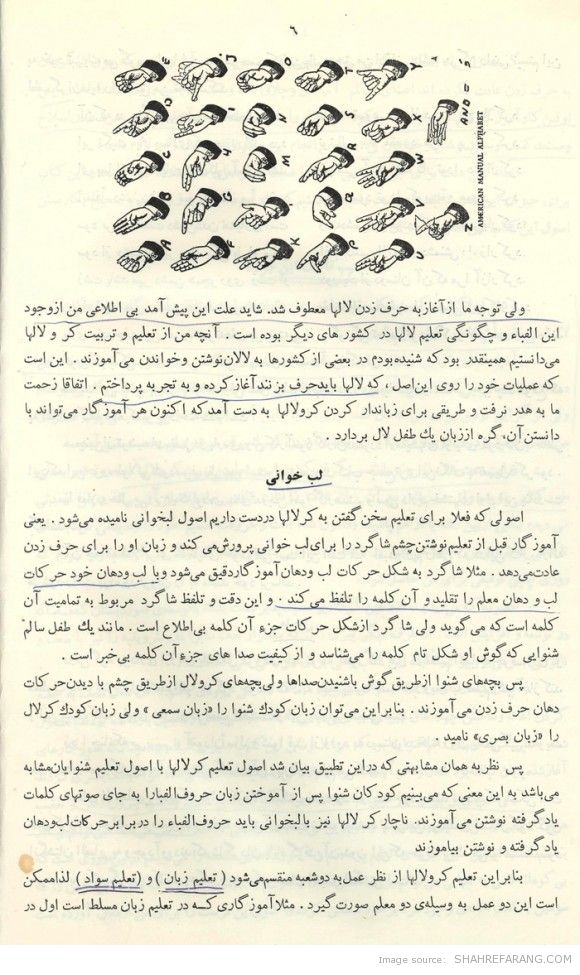 ٦
E J O T Y
D I N S X AND =
C H M R W
B G L Q V Z
A F K P U
AMERICAN MANUAL ALPHABET
ولی توجه ما از آغاز به حرف زدن لالها معطوف شد. شاید علت این پیش آمد بی اطلاعی من از وجود
این الفباء و چگونگی تعلیم لالها در کشور های دیگر بوده است . آنچه من از تعلیم و تربیت کر و لالها
می‌دانستیم همینقدر بود که شنیده بودم در بعضی از کشورها به لالان نوشتن وخواندن می آموزند . این است
که عملیات خود را روی این اصل ، که لالها باید حرف بزنند آغاز کرده و به تجربه پرداختم . اتفاقا زحمت
ما به هدر نرفت و طریقی برای زباندار کردن کرولالها به دست آمد که اکنون هر آموزگار می‌تواند با
دانستن آن، گره از زبان یك طفل لال بردارد .
لب خوانی
اصولی که فعلا برای تعلیم سخن گفتن به کرلالها دردست داریم اصول لبخوانی نامیده می‌شود . یعنی
آموزگار قبل از تعلیم نوشتن چشم شاگرد را برای لب خوانی پرورش می‌کند و زبان او را برای حرف زدن
عادت می‌دهد . مثلا شاگرد به شکل حرکات لب ودهان آموزگار دقیق می‌شود و با لب ودهان خود حرکات
لب و دهان معلم را تقلید و آن کلمه را تلفظ می کند . و این دقت و تلفظ شاگرد مربوط به تمامیت آن
کلمه است که می گوید ولی شاگرد ازشکل حرکات جزء آن کلمه بی‌اطلاع است . مانند یك طفل سالم
شنوایی که گوش او شکل تام کلمه را می‌شناسد و از کیفیت صدا های جزء آن کلمه بی‌خبر است .
پس بچه‌های شنوا ازطریق گوش باشنیدن صداها ولی بچه‌های کرولال ازطریق چشم با دیدن حرکات
دهان حرف زدن می آموزند . بنابراین می‌توان زبان کودك شنوا را «زبان سمعی » ولی زبان کودك کرلال
را «زبان بصری» نامید .
پس نظر به همان مشابهتی که دراین تطبیق بیان شد اصول تعلیم کرلالها با اصول تعلیم شنوایان مشابه
می‌باشد به این معنی که می‌بینیم کودکان شنوا پس از آموختن زبان حروف الفبا را به جای صوتهای کلمات
یاد گرفته نوشتن می‌آموزند. ناچار کرلالها نیز بالبخوانی باید حروف الفباء را در برابر حرکات لب‌ودهان
یادگرفته و نوشتن بیاموزند
بنابراین تعلیم کرولالها از نظر عمل به دوشعبه منقسم می‌شود ( تعلیم زبان ) و ( تعلیم سواد ) لذا ممکن
است این دو عمل به وسیله‌ی دو معلم صورت گیرد . مثلا آموزگاری که در تعلیم زبان مسلط است اول در
Image source: SHAHREFARANG.COM